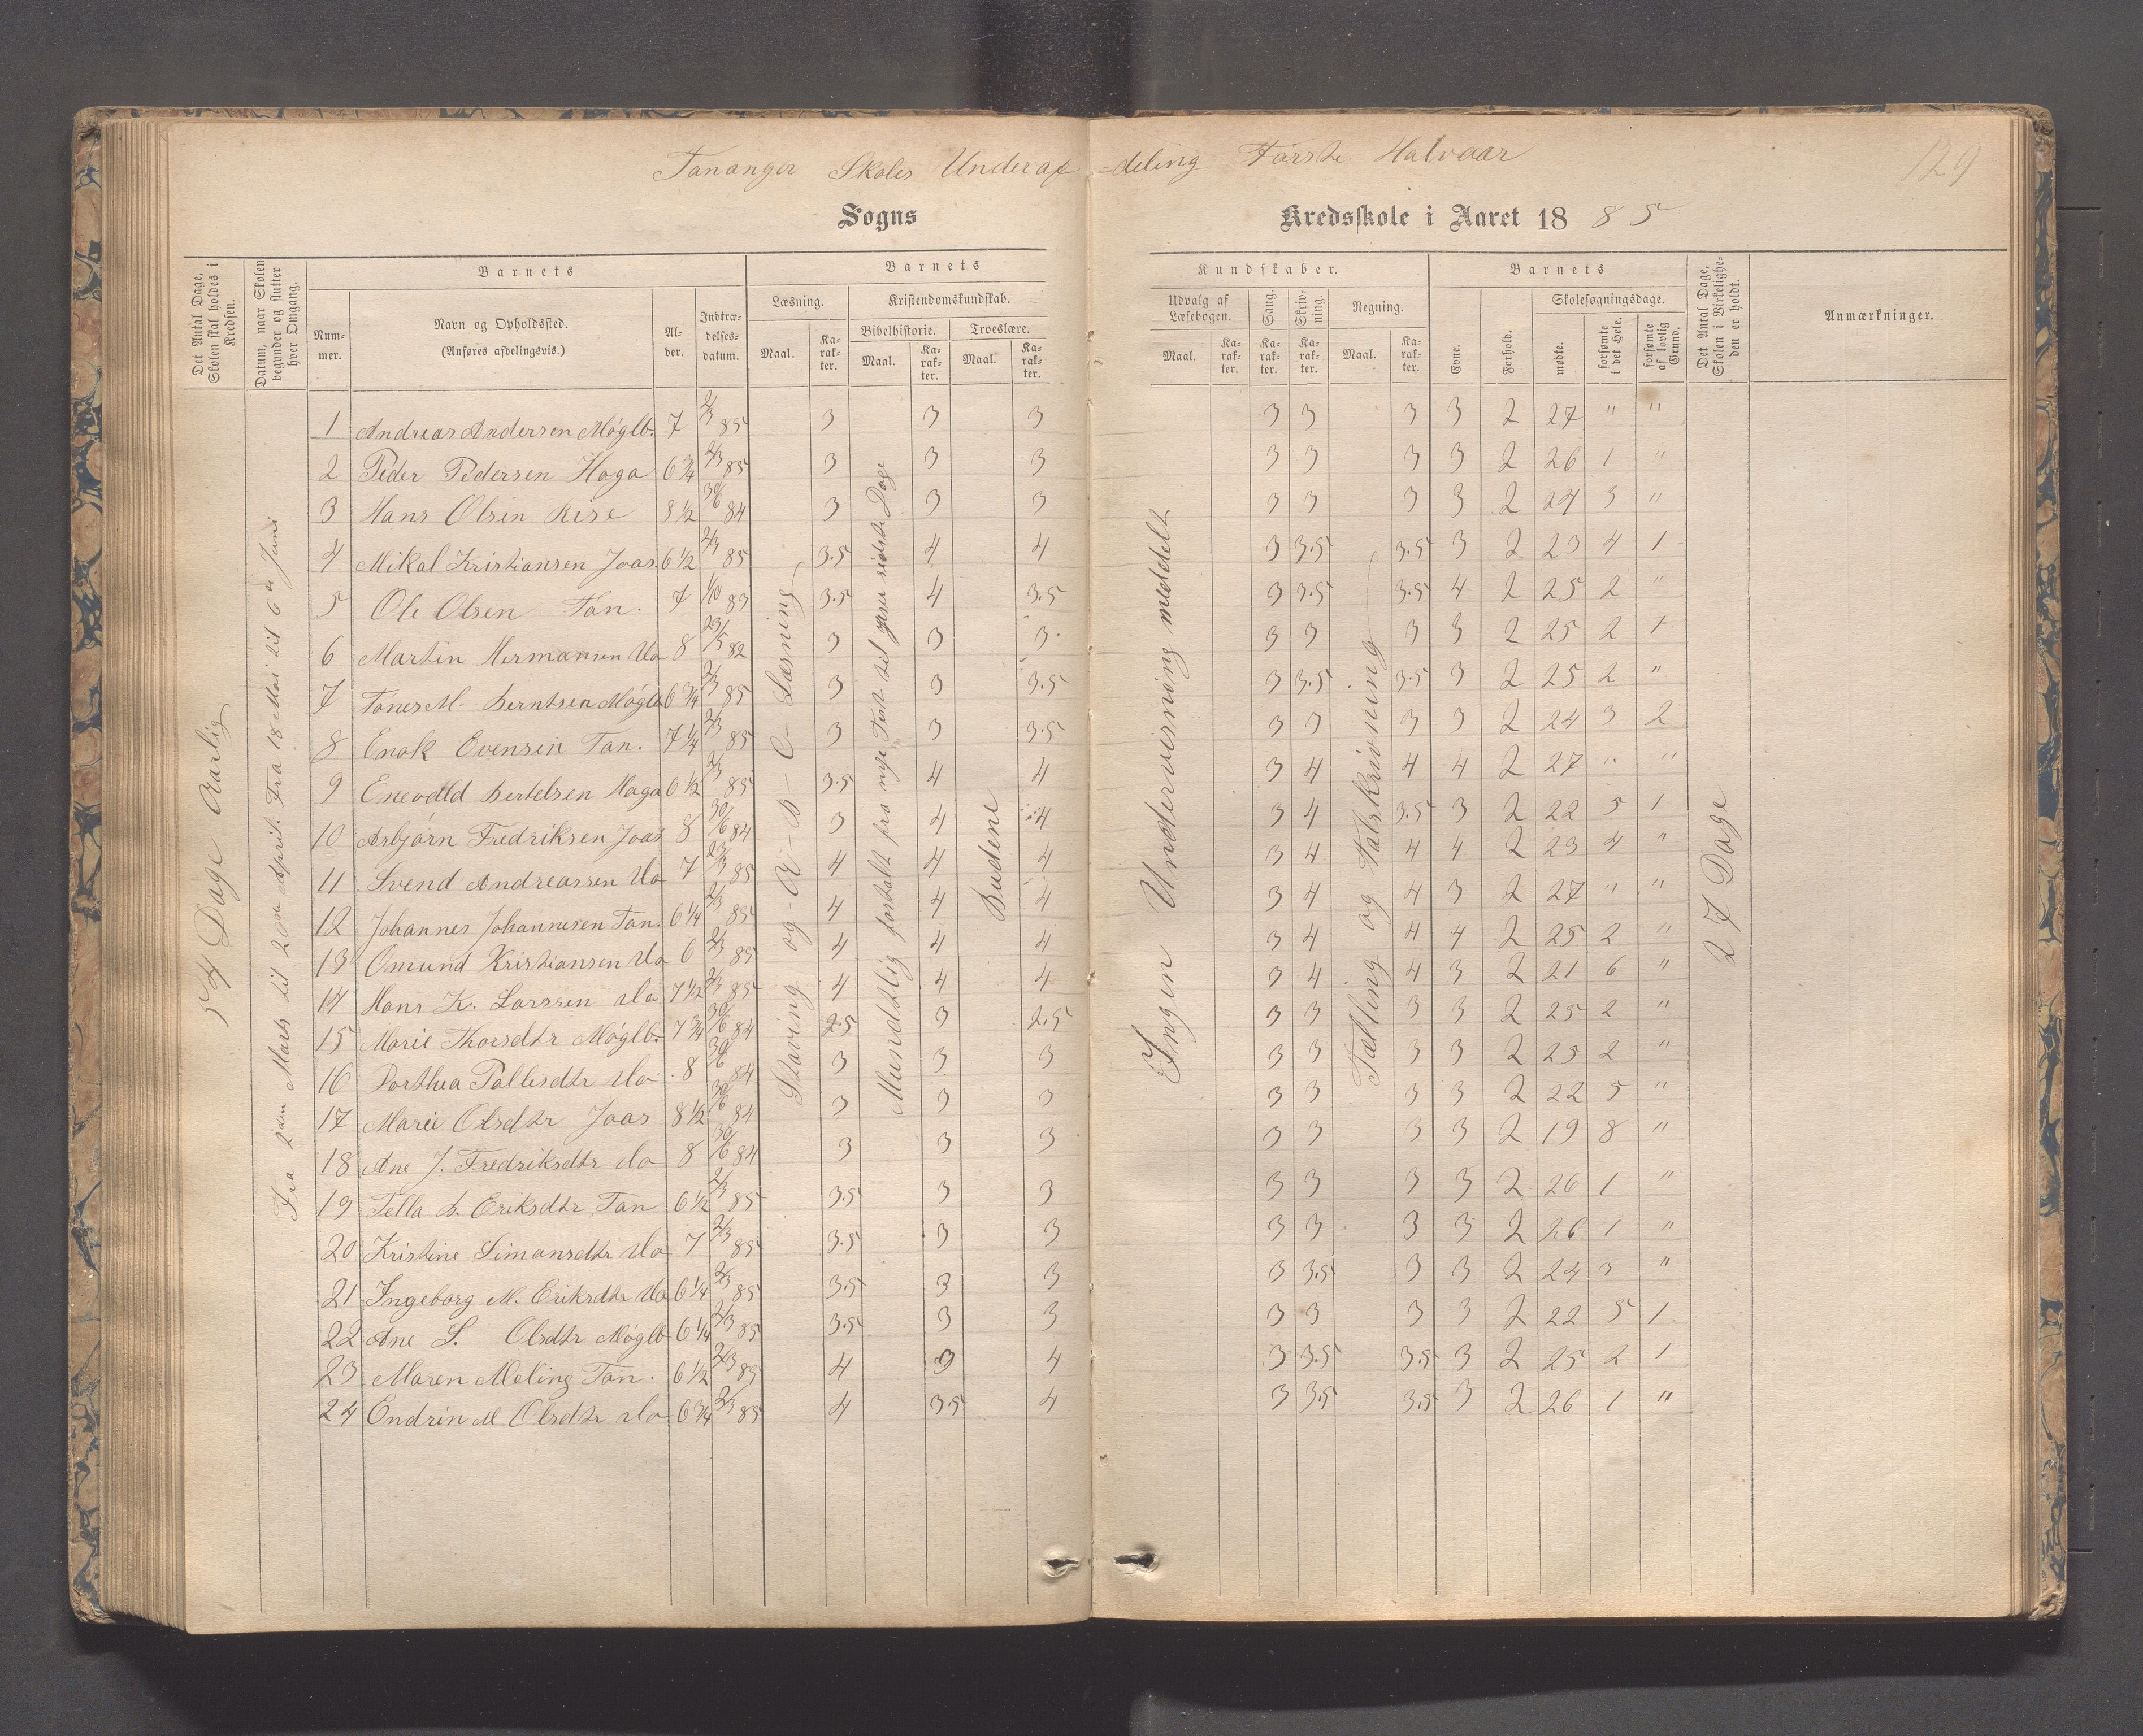 Tananger Skoles Underaf-deling Første Halvaar
129
Sogns Kredsskole i Aaret 1885
Det Antal Dage, Skolen skal holdes i Kredsen.
Datum, naar Skolen begynder og slutter hver Omgang.
Barnets
Nummer.
Navn og Opholdssted. (Anføres afdelingsvis.)
Alder.
Indtrædelsesdatum.
Barnets Kundskaber.
Læsning.
Maal.
Karakter.
Kristendomskundskab.
Bibelhistorie.
Maal.
Karakter.
Troeslære.
Maal.
Karakter.
Udvalg af Læsebogen.
Maal.
Karakter.
Sang.
Karakter.
Skrivning.
Karakter.
Regning.
Maal.
Karakter.
Barnets
Evne.
Forhold.
Skolesøgningsdage.
mødte.
forsømte i det Hele.
forsømte af lovlig Grund.
Det Antal Dage, Skolen i Virkeligheden er holdt.
Anmærkninger.
54 Dage Aarlig
Fra 2den Marts til 20de April. Fra 18 Mai til 6te Juni
Staving og A-B-C-Læsning
Mundtlig fortalt fra nye Test til Jesu sidste Dage
Budene
Ingen Undervisning meddelt
Tælling og Talskrivning
27 Dage
1 Andreas Andersen Møglb. 7 2/3 85 3 3 3 3 3 3 3 2 27 " "
2 Peder Pedersen Haga 6 3/4 2/3 85 3 3 3 3 3 3 3 2 26 1 "
3 Hans Olsen Risе 8 1/2 30/6 84 3 3 3 3 3 3 3 2 24 3 "
4 Mikal Kristiansen Joas. 6 1/2 2/3 85 3.5 4 4 3 3.5 3.5 3 2 23 4 1
5 Ole Olsen Tan. 7 1/10 83 3.5 4 3.5 3 3.5 3.5 4 2 25 2 "
6 Martin Hermansen Do 8 23/5 82 3 3 3 3 3 3 3 2 25 2 1
7 Tønes M. Berntsen Møglb 6 3/4 2/3 85 3 3 3.5 3 3.5 3.5 3 2 25 2 "
8 Enok Evensen Tan. 7 1/4 2/3 85 3 3 3.5 3 3 3 3 2 24 3 2
9 Enevald Bertelsen Haga 6 1/2 2/3 85 3.5 4 4 3 4 4 4 2 27 " "
10 Asbjørn Fredriksen Joas 8 30/6 84 3 4 4 3 4 3.5 3 2 22 5 1
11 Svend Andreassen Do 7 23/3 85 4 4 4 3 4 4 4 2 23 4 "
12 Johannes Johannesen Tan. 6 1/4 2/3 85 4 4 4 3 4 4 3 2 27 " "
13 Omund Kristiansen Do 6 2/3 85 4 4 4 3 4 4 4 2 25 2 "
14 Hans K. Larssen Do 7 1/2 2/3 85 4 4 4 3 4 4 3 2 21 6 "
15 Marie Thorsdtr Møglb. 7 3/4 30/6 84 2.5 3 2.5 3 3 3 3 2 25 2 "
16 Dorthea Pallesdtr Do 8 30/6 84 3 3 3 3 3 3 3 2 25 2 "
17 Marie Olsdtr Joas 8 1/2 30/6 84 3 3 3 3 3 3 3 2 22 5 "
18 Ane J. Fredriksdtr Do 8 30/6 84 3 3 3 3 3 3 3 2 19 8 "
19 Tella B. Eriksdtr Tan 6 1/2 2/3 85 3.5 3 3 3 3 3 3 2 26 1 "
20 Kristine Simonsdtr Do 7 2/3 85 3.5 3 3 3 3 3 3 2 26 1 "
21 Ingeborg M. Eriksdtr Do 6 1/4 2/3 85 3.5 3 3 3 3.5 3 3 2 24 3 "
22 Ane S. Olsdtr Møglb 6 1/4 2/3 85 3.5 3 3 3 3 3 3 2 22 5 1
23 Maren Meling Tan. 6 1/2 2/3 85 4 3 4 3 3.5 3.5 3 2 25 2 1
24 Endrin M Olsdtr Do 6 3/4 2/3 85 4 3.5 4 3 3.5 3.5 3 2 26 1 "